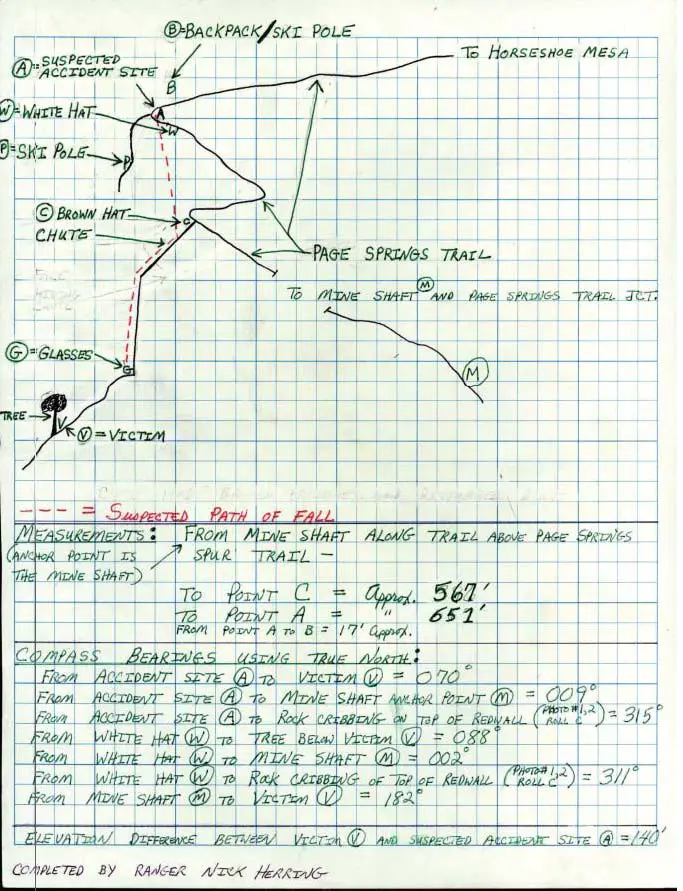 Ⓑ=BACKPACK/SKI POLE
TO HORSESHOE MESA
Ⓐ=SUSPECTED
ACCIDENT SITE
B
Ⓦ=WHITE HAT
A
W
Ⓟ=SKI POLE
P
Ⓒ BROWN HAT
C
CHUTE
PAGE SPRINGS TRAIL
TO MINE SHAFT Ⓜ AND PAGE SPRINGS TRAIL JCT.
Ⓖ=GLASSES
G
Ⓜ
TREE
V
Ⓥ=VICTIM
--- = SUSPECTED PATH OF FALL
MEASUREMENTS: FROM MINE SHAFT ALONG TRAIL ABOVE PAGE SPRINGS
(ANCHOR POINT IS SPUR TRAIL –
THE MINE SHAFT)
TO POINT C = Approx. 567'
TO POINT A = " 651'
FROM POINT A TO B = 17' Approx.
COMPASS BEARINGS USING TRUE NORTH:
FROM ACCIDENT SITE Ⓐ TO VICTIM Ⓥ = 070°
FROM ACCIDENT SITE Ⓐ TO MINE SHAFT ANCHOR POINT Ⓜ = 009°
FROM ACCIDENT SITE Ⓐ TO ROCK CRIBBING ON TOP OF REDWALL (PHOTO# 1,2 ROLL C) = 315°
FROM WHITE HAT Ⓦ TO TREE BELOW VICTIM Ⓥ = 088°
FROM WHITE HAT Ⓦ TO MINE SHAFT Ⓜ = 002°
FROM WHITE HAT Ⓦ TO ROCK CRIBBING OF TOP OF REDWALL (PHOTO# 1,2 ROLL C) = 311°
FROM MINE SHAFT Ⓜ TO VICTIM Ⓥ = 182°
ELEVATION DIFFERENCE BETWEEN VICTIM Ⓥ AND SUSPECTED ACCIDENT SITE Ⓐ = 140'
COMPLETED BY RANGER NICK HERRING